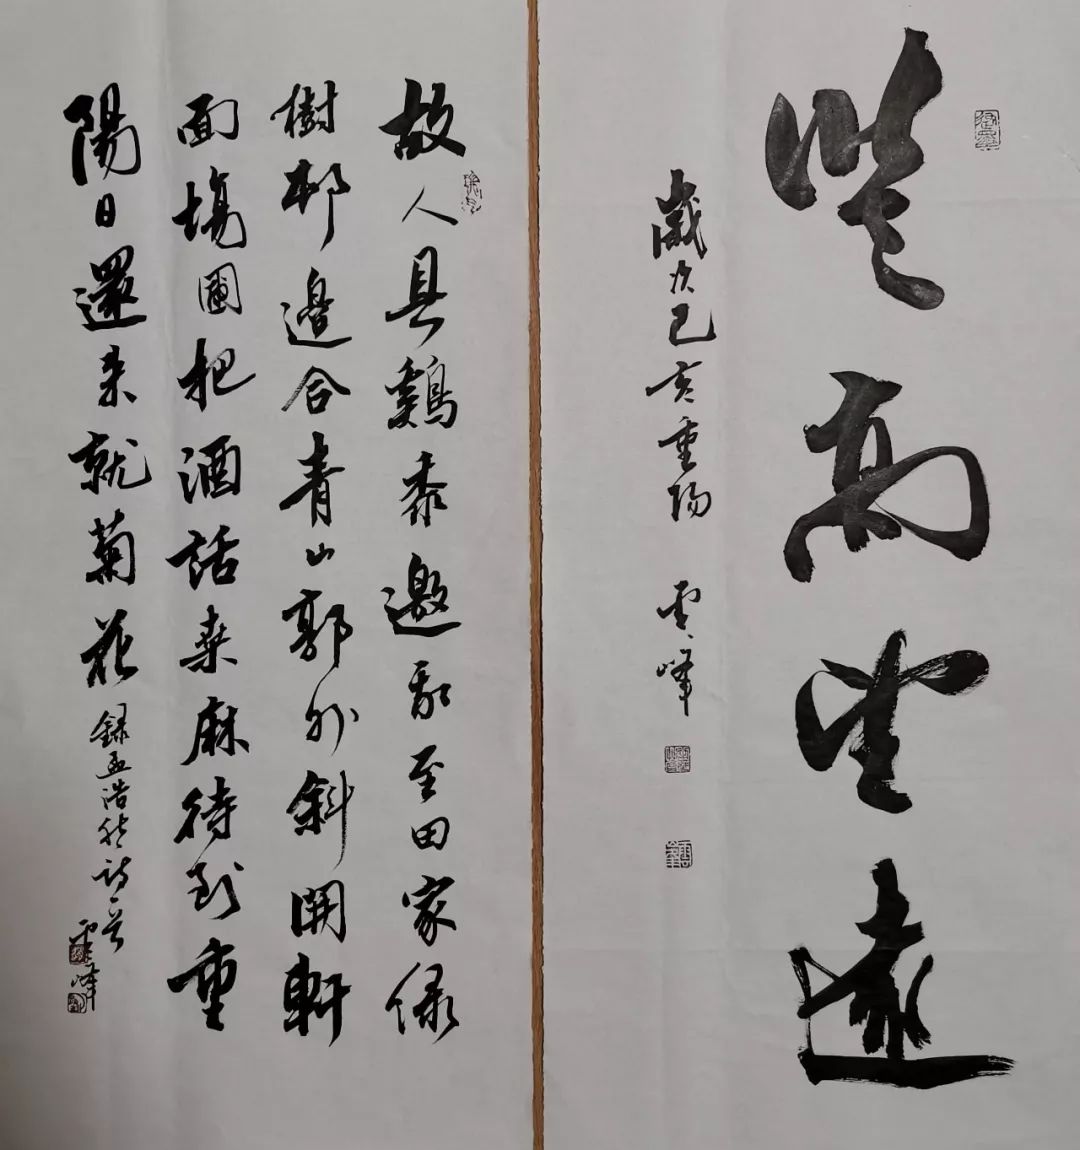 登高望遠
歲次己亥重陽 雲峰
故人具鷄黍邀我至田家绿
樹邨邊合青山郭外斜開軒
面場圃把酒話桑麻待到重
陽日還来就菊花 録孟浩然詩一首 雲峰